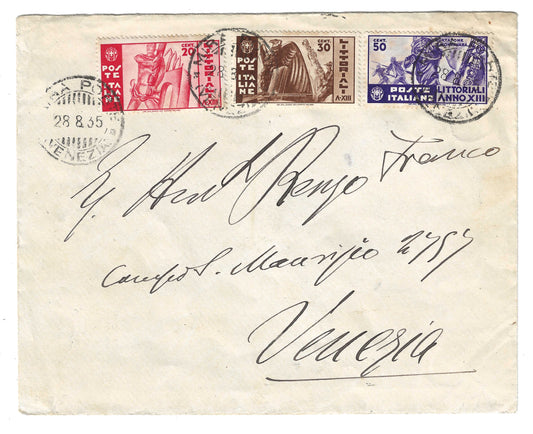 CENT. 20
POSTE ITALIANE
LITTORIALI
A·XIII
CENT. 30
POSTE ITALIANE
LITTORIALI
A·XIII
CENT. 50
POSTE ITALIANE
LITTORIALI
ANNO XIII
28 8 35
VENEZIA
Renzo Franco
Campo S. Maurizio 2757
Venezia